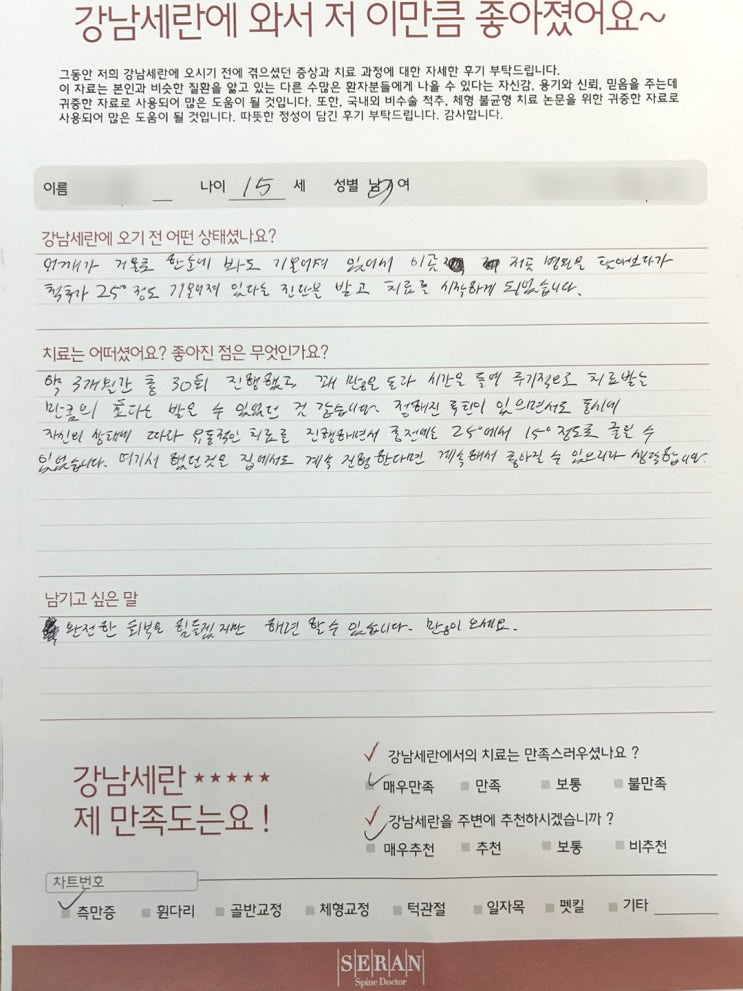 강남세란에 와서 저 이만큼 좋아졌어요~
그동안 저희 강남세란에 오시기 전에 겪으셨던 증상과 치료 과정에 대한 자세한 후기 부탁드립니다.
이 자료는 본인과 비슷한 질환을 앓고 있는 다른 수많은 환자분들에게 나을 수 있다는 자신감, 용기와 신뢰, 믿음을 주는데
귀중한 자료로 사용되어 많은 도움이 될 것입니다. 또한, 국내외 비수술 척추, 체형 불균형 치료 논문을 위한 귀중한 자료로
사용되어 많은 도움이 될 것입니다. 따뜻한 정성이 담긴 후기 부탁드립니다. 감사합니다.
이름 나이 15 세 성별 남/여
강남세란에 오기 전 어떤 상태셨나요?
어깨가 겨울로 한눈에 봐도 기울어져 있어서 이곳 저곳 병원을 찾아보다가
척추가 25° 정도 기울어져 있다는 진단을 받고 치료를 시작하게 되었습니다.
치료는 어떠셨어요? 좋아진 점은 무엇인가요?
약 3개월간 총 30회 진행했고 꽤 많은 돈과 시간을 들여 주기적으로 치료받는
만큼의 효과는 받을 수 있었던 것 같습니다. 정해진 루틴이 있으면서도 동시에
자신의 상태에 따라 유동적인 치료를 진행하면서 종전에는 25°에서 15° 정도로 줄일 수
있었습니다. 여기서 했던것은 집에서도 계속 진행한다면 계속해서 좋아질 수 있으리라 생각합니다.
남기고 싶은 말
완전한 회복은 힘들겠지만 하면 할 수 있습니다. 많이 오세요.
강남세란 ★★★★★
제 만족도는요 !
강남세란에서의 치료는 만족스러우셨나요 ?
매우만족 만족 보통 불만족
강남세란을 주변에 추천하시겠습니까 ?
매우추천 추천 보통 비추천
차트번호
측만증 휜다리 골반교정 체형교정 턱관절 일자목 펫킬 기타
SERAN
Spine Doctor